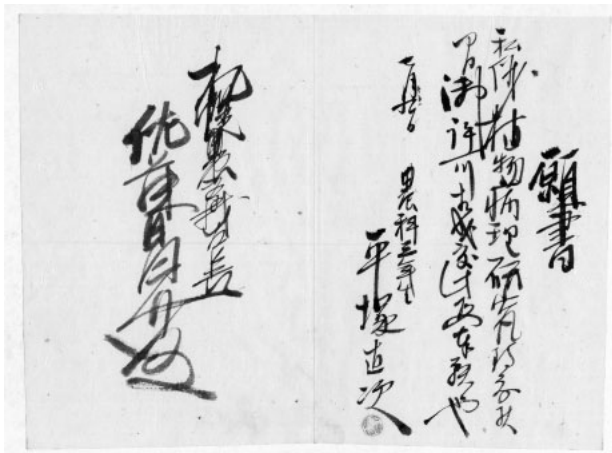 願書
私儀植物病理研究
御許可相成度此段奉願候也
農科三年生
平塚直次
札幌農學校長
佐藤昌介殿